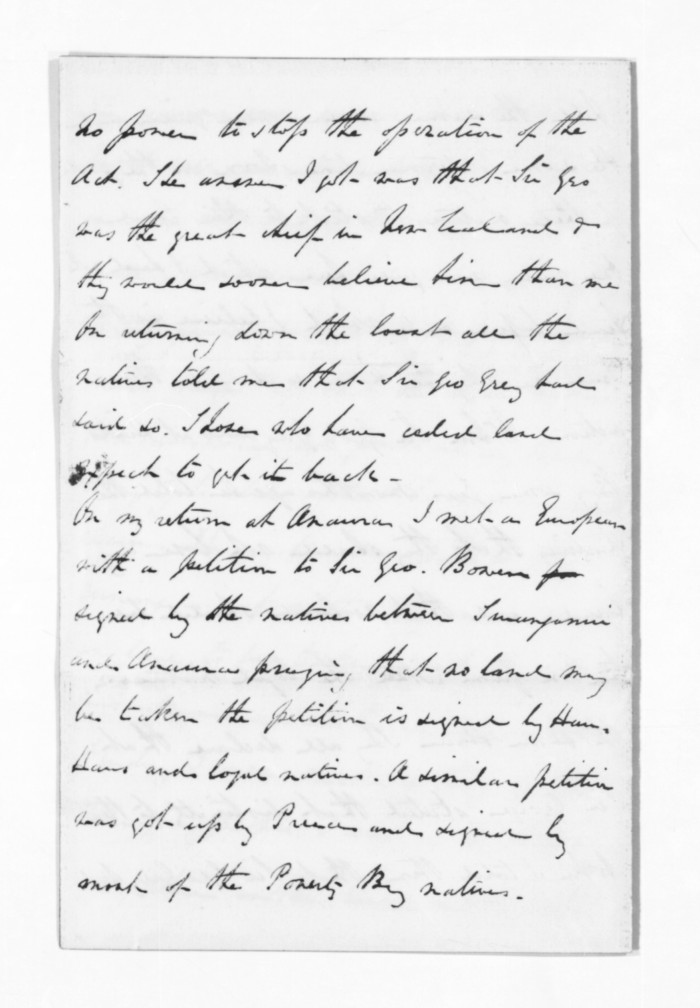 no power to stop the operation of the
Act. The answer I got was that Sir Geo
was the great chief in New Zealand &
they would sooner believe him than me
On returning down the coast all the
natives told me that Sir Geo Grey had
said so. Those who have ceded land
expect to get it back -
On my return at Anaura I met a European
with a petition to Sir Geo. Bowen
signed by the natives between Turanganui
and Anaura praying that no land may
be taken the petition is signed by Hau-
Haus and loyal natives. A similar petition
was got up by Preece and signed by
most of the Poverty Bay natives.